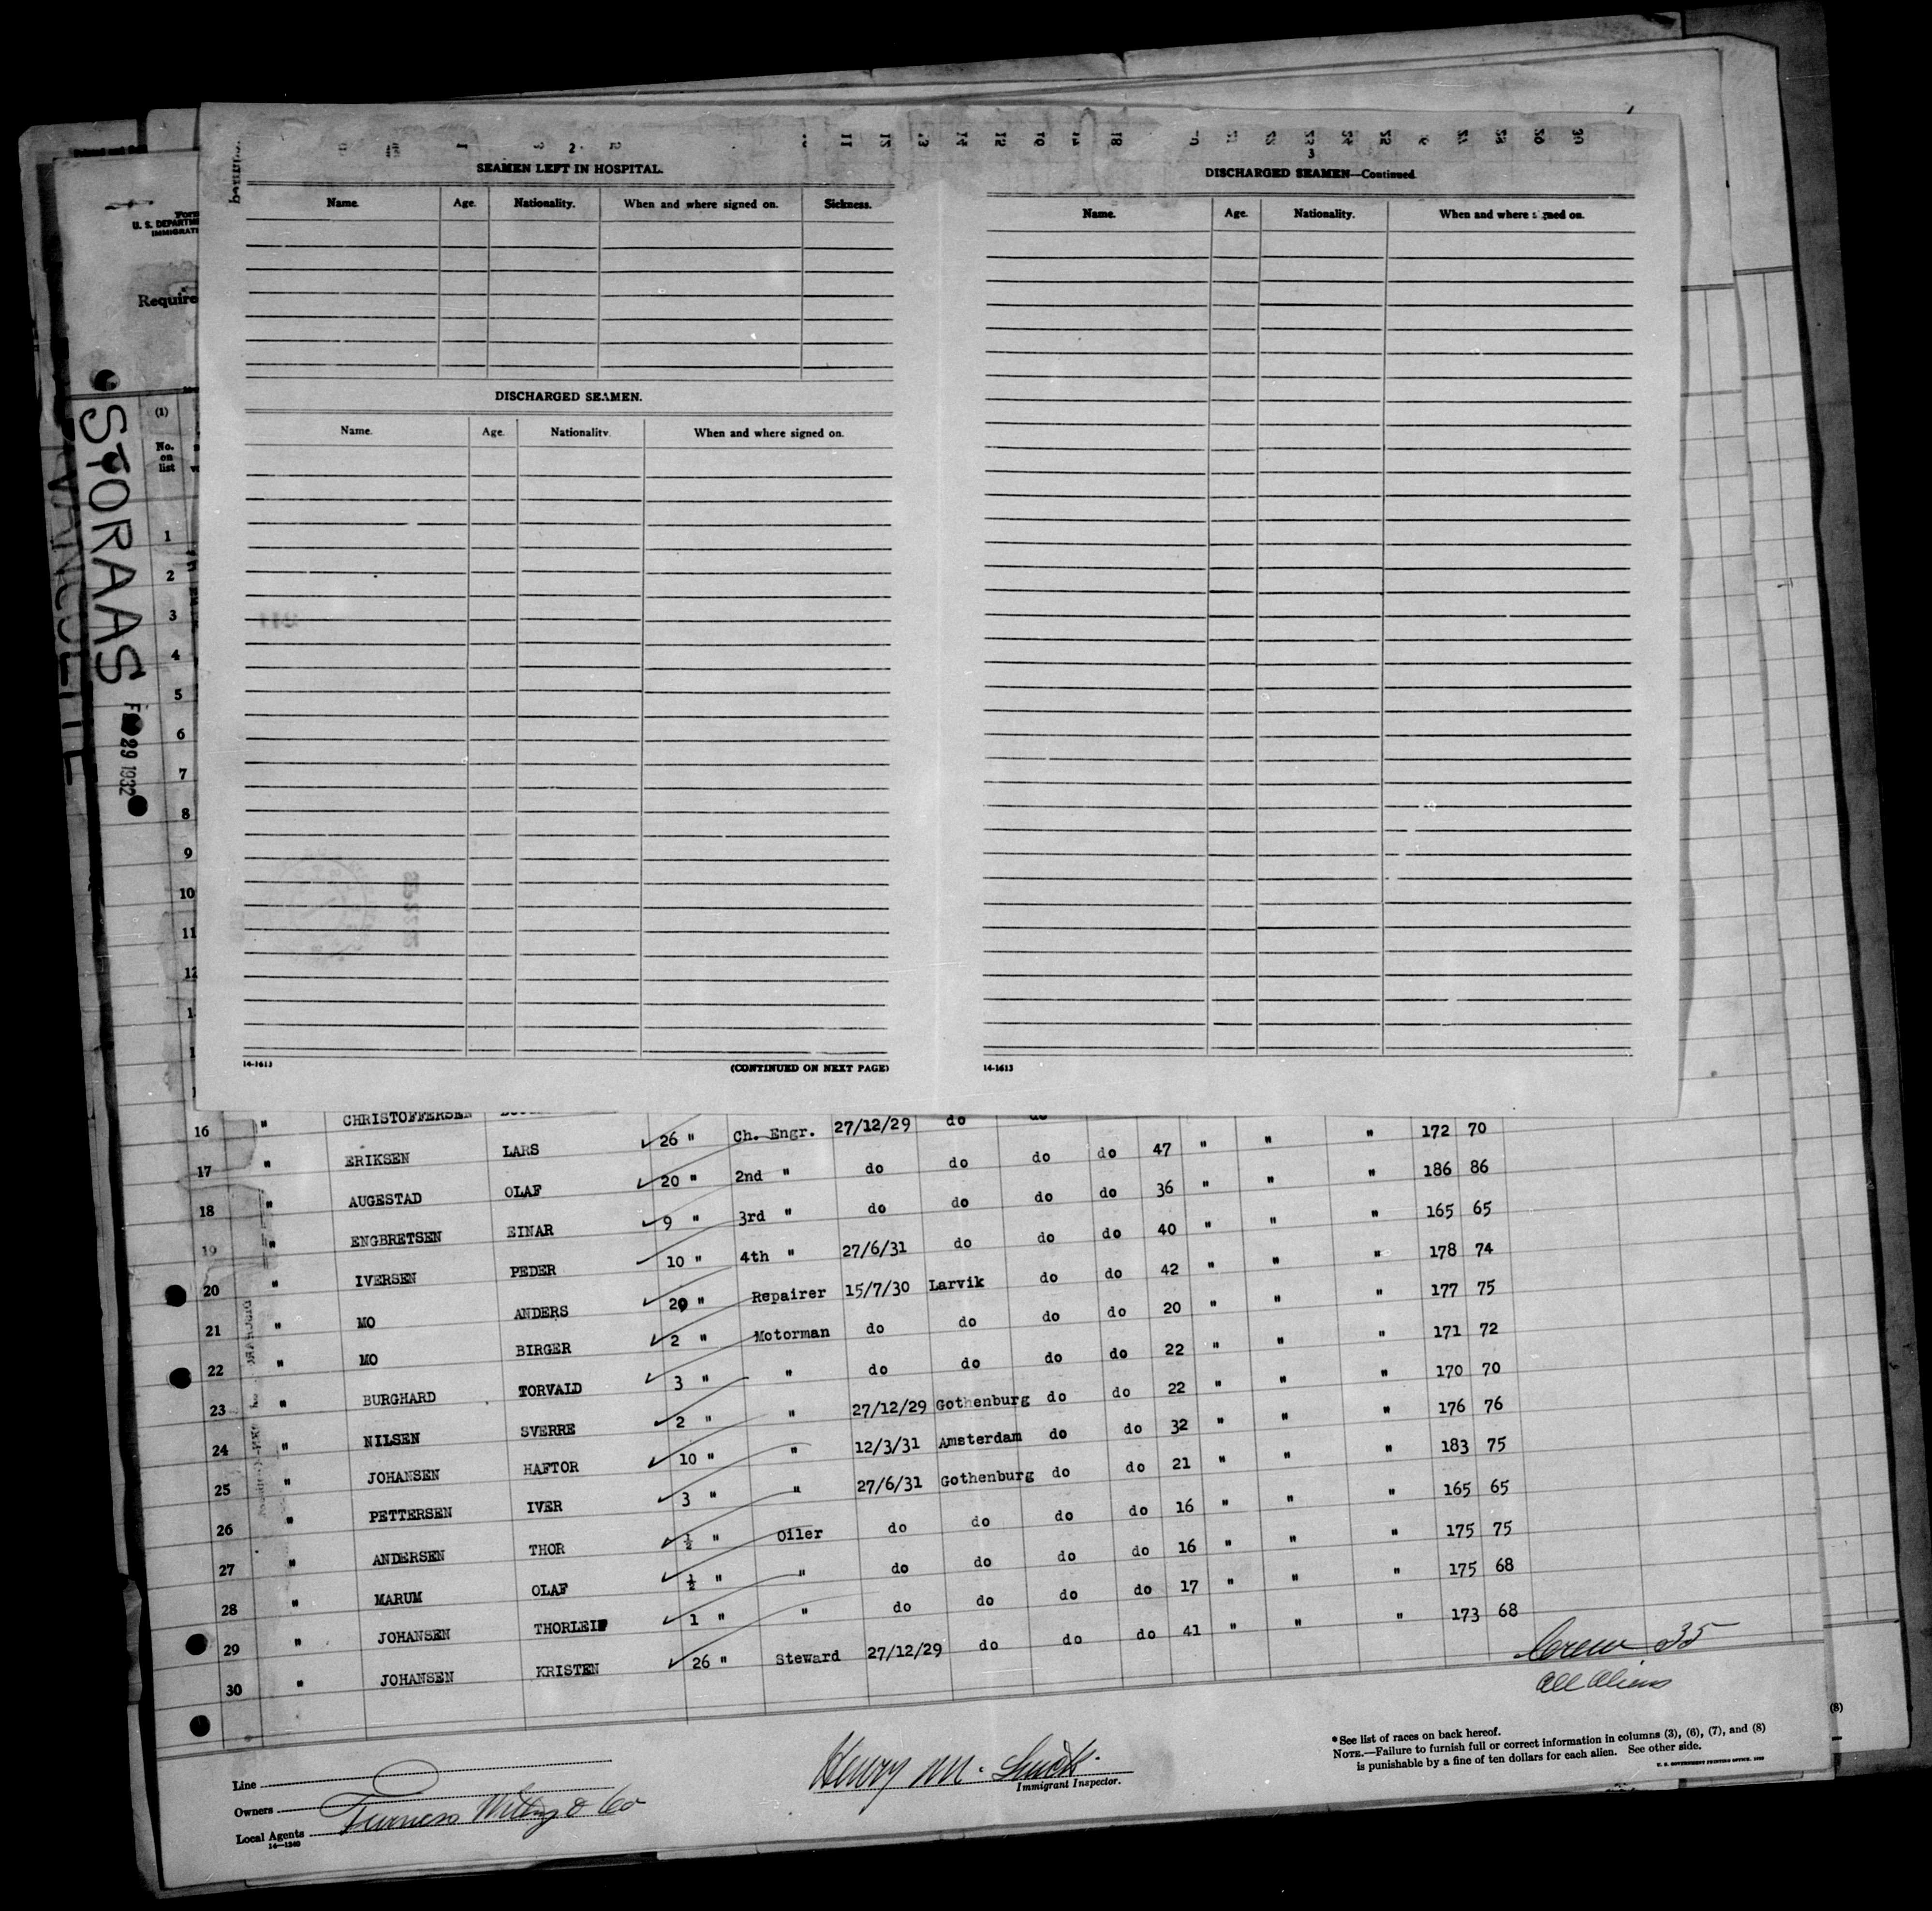 2
SEAMEN LEFT IN HOSPITAL.
Name. Age. Nationality. When and where signed on. Sickness.
DISCHARGED SEAMEN.
Name. Age. Nationality. When and where signed on.
14-1613 (CONTINUED ON NEXT PAGE)
3
DISCHARGED SEAMEN—Continued
Name. Age. Nationality. When and where signed on.
14-1613
U. S. DEPARTME
IMMIGRATI
Require
(1)
No.
on
list
STORAAS
29 1932
1
2
3
4
5
6
7
8
9
10
11
12
16 " CHRISTOFFERSEN 26 " Ch. Engr. 27/12/29 do do " 172 70
17 " ERIKSEN LARS 20 " 2nd " do do do do 47 " " " 186 86
18 " AUGESTAD OLAF 9 " 3rd " do do do do 36 " " " 165 65
19 " ENGBRETSEN EINAR 10 " 4th " 27/6/31 do do do 40 " " " 178 74
20 " IVERSEN PEDER 20 " Repairer 15/7/30 Larvik do do 42 " " " 177 75
21 " MO ANDERS 2 " Motorman do do do do 20 " " " 171 72
22 " MO BIRGER 3 " " do do do do 22 " " " 170 70
23 " BURGHARD TORVALD 2 " " 27/12/29 Gothenburg do do 22 " " " 176 76
24 " NILSEN SVERRE 10 " " 12/3/31 Amsterdam do do 32 " " " 183 75
25 " JOHANSEN HAFTOR 3 " " 27/6/31 Gothenburg do do 21 " " " 165 65
26 " PETTERSEN IVER ½ " Oiler do do do do 16 " " " 175 75
27 " ANDERSEN THOR ½ " " do do do do 16 " " " 175 68
28 " MARUM OLAF 1 " " do do do do 17 " " " 173 68
29 " JOHANSEN THORLEIF 26 " Steward 27/12/29 do do do 41 " "
30 " JOHANSEN KRISTEN
Crew 35
All Aliens
Line
Owners
Local Agents Furness Withy & Co
14—1240
Henry M. Smith
Immigrant Inspector.
*See list of races on back hereof.
NOTE.—Failure to furnish full or correct information in columns (3), (6), (7), and (8)
is punishable by a fine of ten dollars for each alien. See other side.
(8)